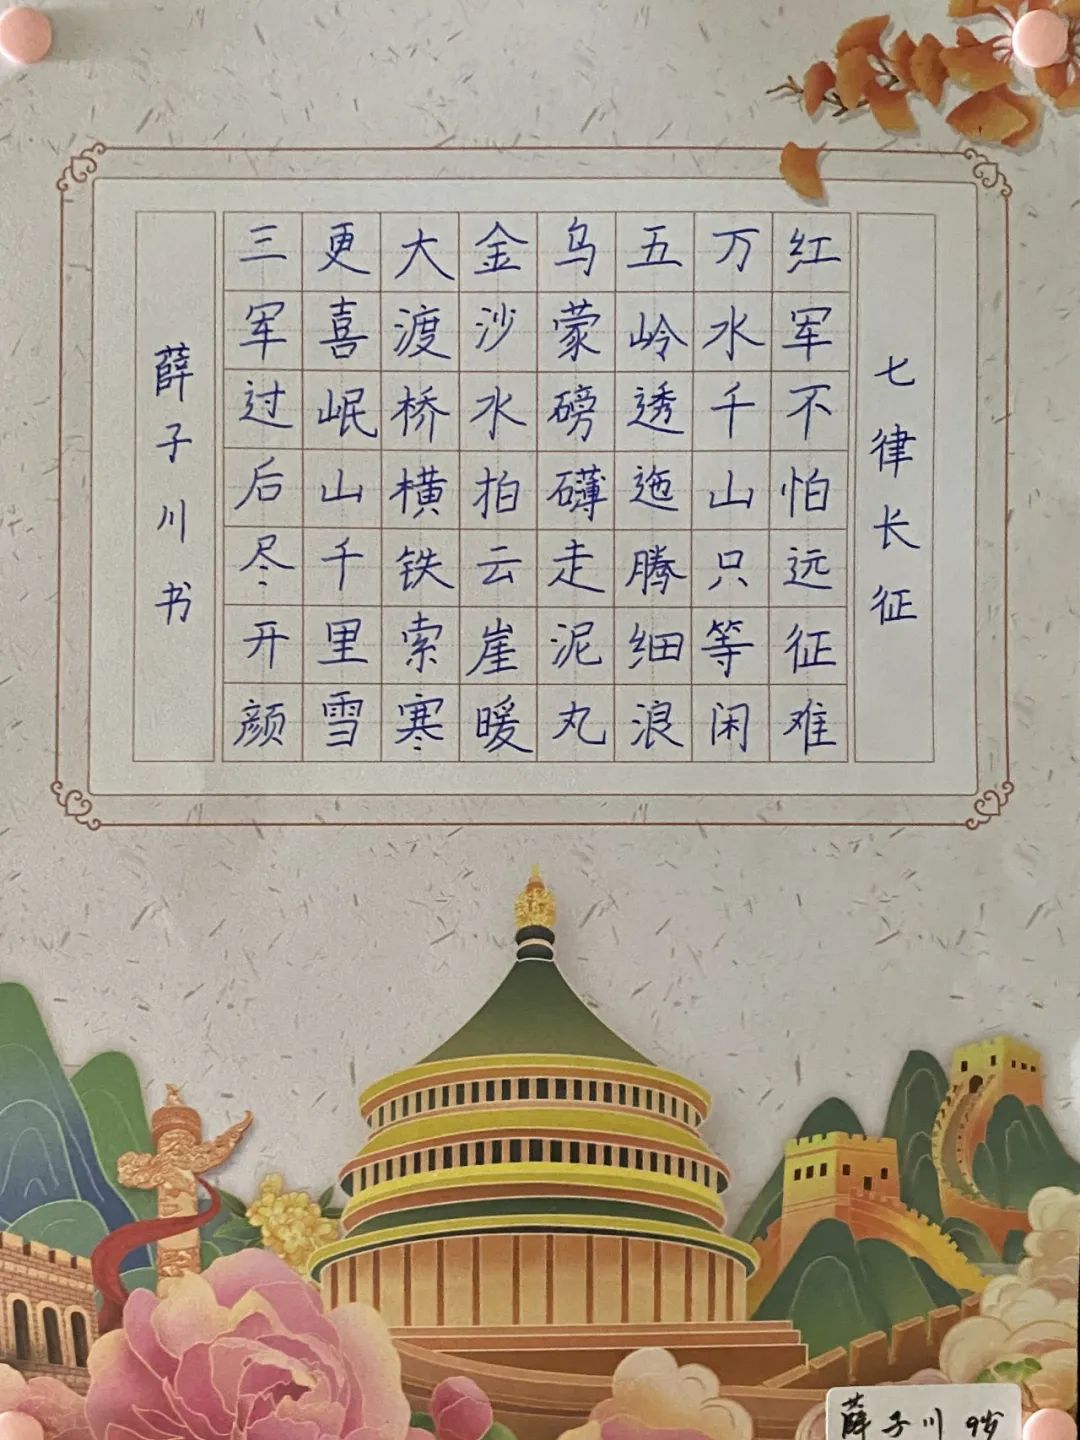 七律长征
红军不怕远征难
万水千山只等闲
五岭逶迤腾细浪
乌蒙磅礴走泥丸
金沙水拍云崖暖
大渡桥横铁索寒
更喜岷山千里雪
三军过后尽开颜
薛子川书
薛子川 9岁